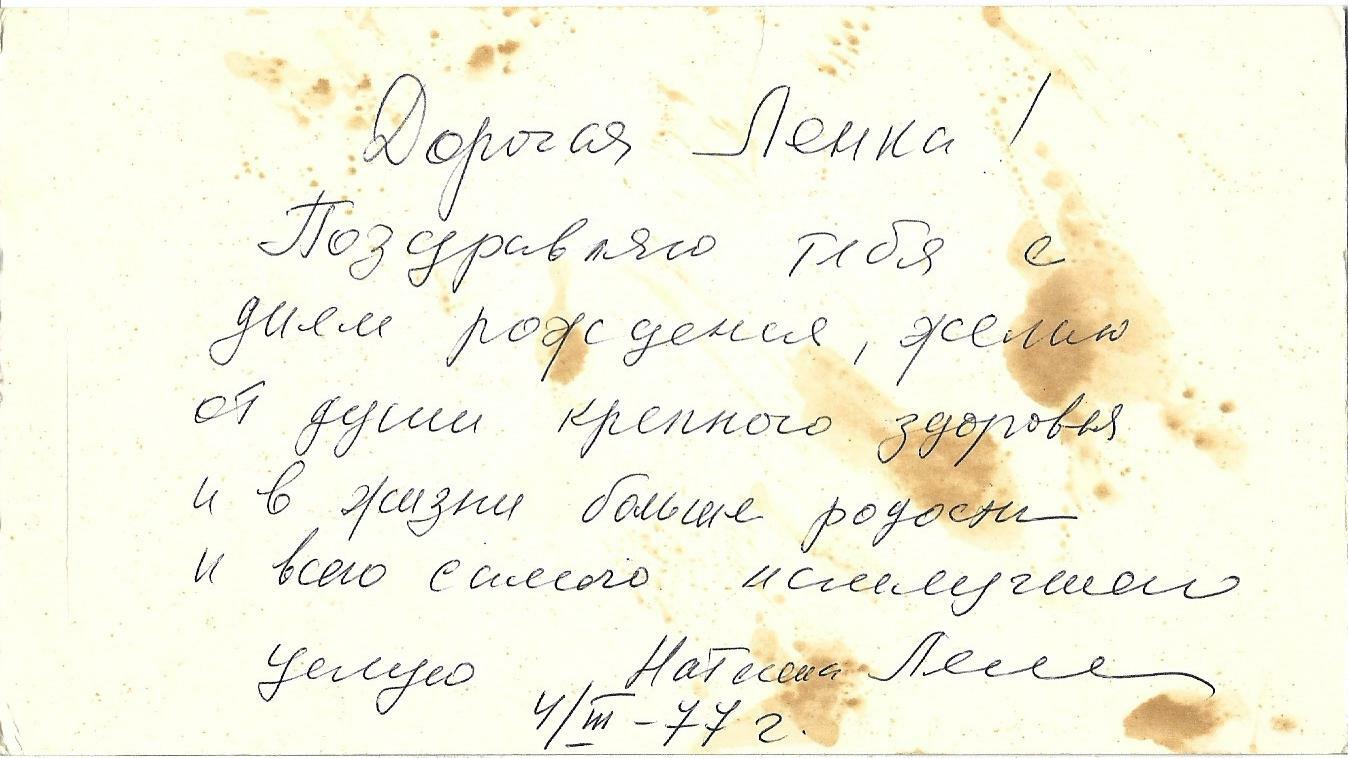 Дорогая Ленка!
Поздравляю тебя с
днем рожденья, желаю
от души крепкого здоровья
и в жизни больше радости
и всего самого наилучшего
целую
4/III - 77 г.